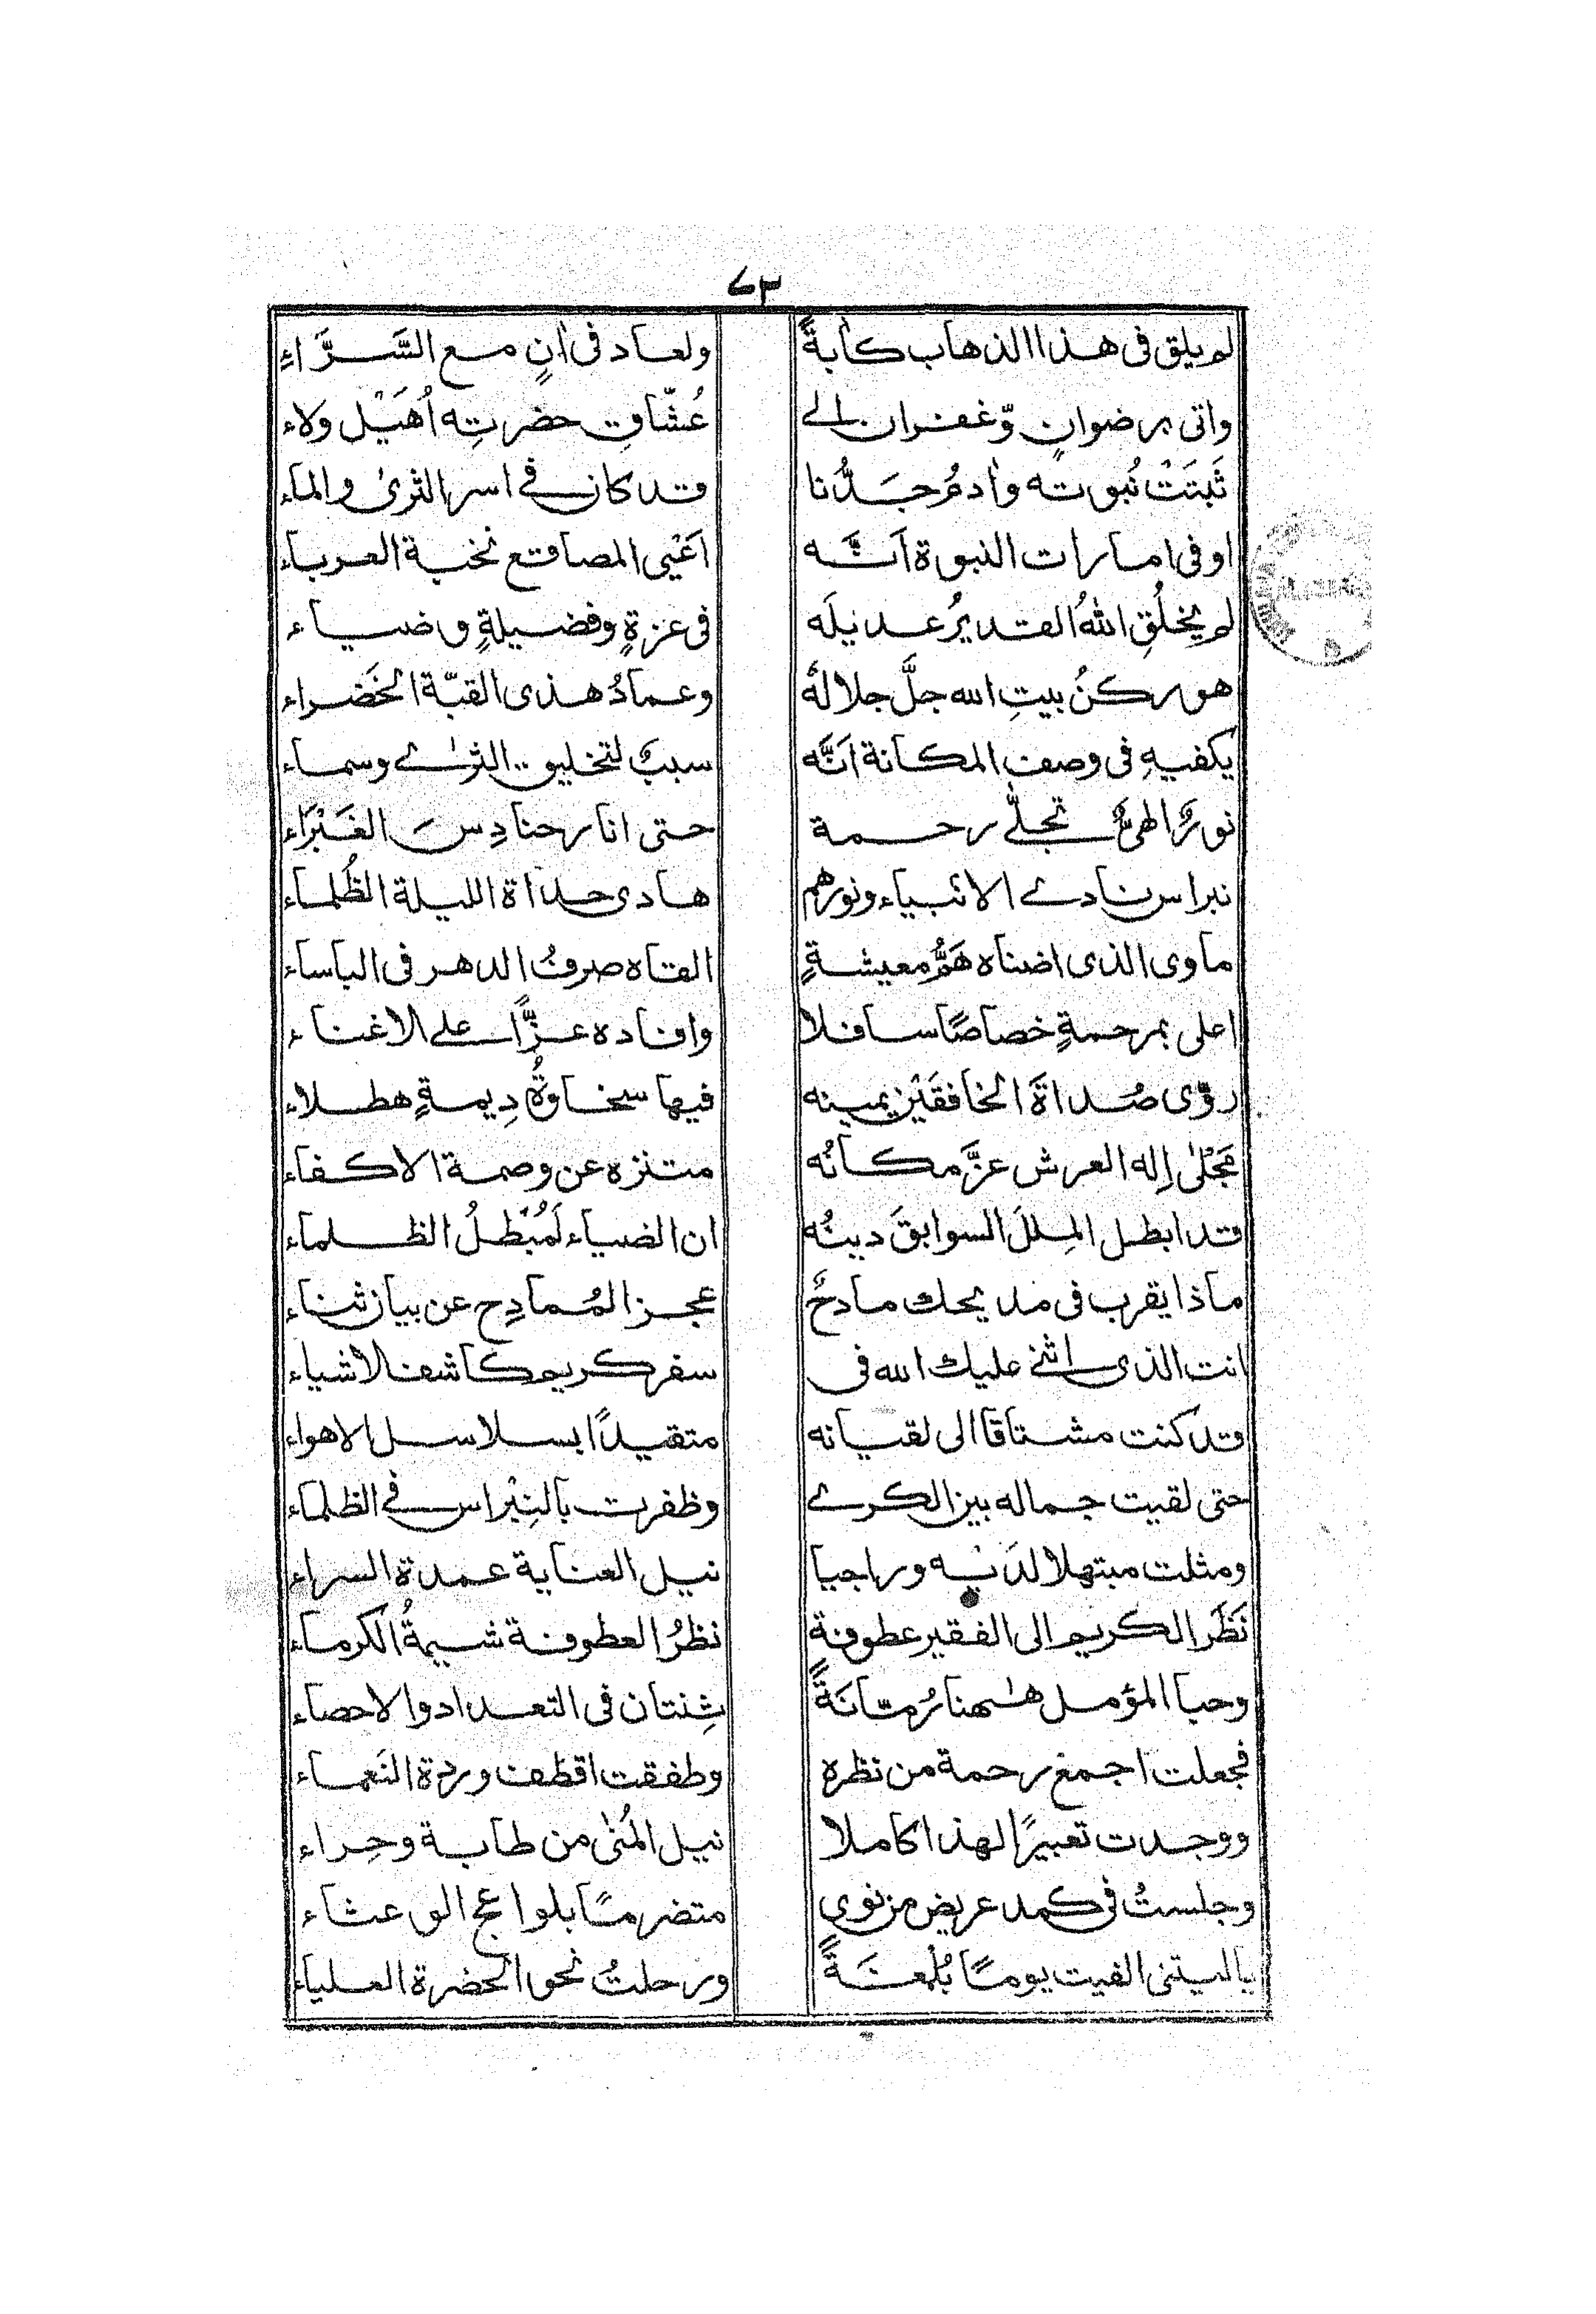 ٧٣
لم يلق فى هذا الذهاب كاٰبةً ولعاد فى اٰنٍ مع السَّرَّاءِ
واتى برضوانٍ وّغفران الے عُشّاقِ حضرتِه اُهَيْل ولاء
ثَبتَتْ نُبوته واٰدمُ جَدُّنا قد كان فے اسر الثرىٰ والماء
اوفى امارات النبوة اَنَّه اَعْيى المصاقع نخبة العرباء
لم يخلُقِ اللهُ القديرُ عديلَه فى عزةٍ وفضيلةٍ وضياء
هو ركنُ بيتِ الله جلَّ جلالهُ وعمادُ هذى القبّة الخَضراء
يكفيهِ فى وصف المكانة اَنَّه سببٌ لتخليق الثرےٰ وسماء
نورٌ الٰهىٌّ تجلّٰے رحمة حتى انار حنادِسَ الغَبْرَاء
نبراس نادے الانبياء ونورهم هادى حداة الليلة الظُلماء
ماوى الذى اضناه هَمُّ معيشةٍ القاه صرفُ الدهر فى الباساء
اعلى بمرحمةٍ خصاصًا سافلا وافاده عزًّا علے الاغناء
روّى صُداةَ الخافقَيْن يمينه فيها سخاوةُ دِيمةٍ هطلاء
مَجْلىٰ اِله العرش عزَّ مكانُه متنزه عن وصمة الاكفاء
قد ابطل المِللَ السوابقَ دينُه ان الضياء لَمُبْطلُ الظلماء
ماذا يقرب فى مديحك مادحٌ عجز المُمادِح عن بيان ثناء
انت الذى اثنے عليك الله فى سفر كريم كاشف الاشياء
قد كنت مشتاقا الى لقيانه متقيدًا بسلاسل الاهواء
حتى لقيت جماله بين الكرے وظفرت بالنِبْراس فے الظلماء
ومثلت مبتهلا لدَيْه وراجيا نيل العناية عمدة السراء
نَظَر الكريم الى الفقير عطوفة نظرُ العطوفة شيمةُ الكرماء
وحبا المؤمل هٰهنا رُمّانَةً ثِنتان فى التعداد والاحصاء
فجعلت اجمع رحمة من نظره وطفقت اقطف وردة النَعماء
ووجدت تعبيرًا لهذا كاملا نيل المُنىٰ من طابة وحِراء
وجلستُ فى كمد عريض من نوى متضرمًا بلواعج الوعثاء
ياليتنى الفيت يومًا بُلْغَةً ورحلتُ نحو الحضرة العلياء